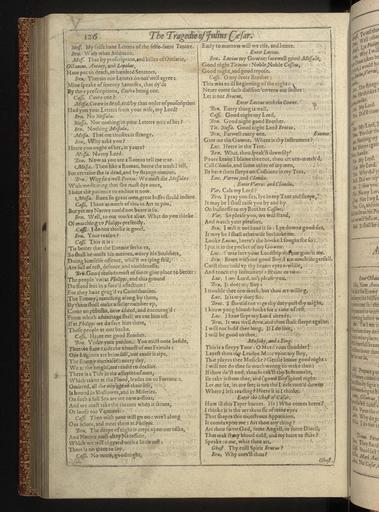 126
The Tragedie of Julius Cæsar.
Mess. My selfe haue Letters of the selfe-same Tenure.
Bru. With what Addition.
Mess. That by proscription, and billes of Outlarie,
Octauius, Antony, and Lepidus,
Haue put to death, an hundred Senators.
Bru. Therein our Letters do not well agree:
Mine speake of seuenty Senators, that dy'de
By their proscriptions, Cicero being one.
Cassi. Cicero one?
Messa. Cicero is dead, and by that order of proscription
Had you your Letters from your wife, my Lord?
Bru. No Messala.
Messa. Nor nothing in your Letters writ of her?
Bru. Nothing Messala.
Messa. That me thinkes is strange.
Bru. Why aske you?
Heare you ought of her, in yours?
Messa. No my Lord.
Bru. Now as you are a Roman tell me true.
Messa. Then like a Roman, beare the truth I tell,
For certaine she is dead, and by strange manner.
Bru. Why farewell Portia: We must die Messala:
With meditating that she must dye once,
I haue the patience to endure it now.
Messa. Euen so great men, great losses shold indure.
Cassi. I haue as much of this in Art as you,
But yet my Nature could not beare it so.
Bru. Well, to our worke aliue. What do you thinke
Of marching to Philippi presently.
Cassi. I do not thinke it good.
Bru. Your reason?
Cassi. This it is:
'Tis better that the Enemie seeke vs,
So shall he waste his meanes, weary his Souldiers,
Doing himselfe offence, whil'st we lying still,
Are full of rest, defence, and nimblenesse.
Bru. Good reasons must of force giue place to better:
The people 'twixt Philippi, and this ground
Do stand but in a forc'd affection:
For they haue grug'd vs Contribution.
The Enemy, marching along by them,
By them shall make a fuller number vp,
Come on refresht, new added, and encourag'd:
From which aduantage shall we cut him off.
If at Philippi we do face him there,
These people at our backe.
Cassi. Heare me good Brother.
Bru. Vnder your pardon. You must note beside,
That we haue tride the vtmost of our Friends:
Our Legions are brim full, our cause is ripe,
The Enemy encreaseth euery day,
We at the height, are readie to decline.
There is a Tide in the affayres of men,
Which taken at the Flood, leades on to Fortune:
Omitted, all the voyage of their life,
Is bound in Shallowes, and in Miseries.
On such a full Sea are we now a-float,
And we must take the current when it serues,
Or loose our Ventures.
Cassi. Then with your will go on: wee'l along
Our selues, and meet them at Philippi.
Bru. The deepe of night is crept vpon our talke,
And Nature must obey Necessitie,
Which we will niggard with a little rest:
There is no more to say.
Cassi. No more, good night,
Early to morrow will we rise, and hence.
Enter Lucius.
Bru. Lucius my Gowne: farewell good Messala,
Good night Titinius: Noble, Noble Cassius,
Good night, and good repose.
Cassi. O my deere Brother:
This was an ill beginning of the night:
Neuer come such diuision 'tweene our soules:
Let it not Brutus.
Enter Lucius with the Gowne.
Bru. Euery thing is well.
Cassi. Good night my Lord.
Bru. Good night good Brother.
Tit. Messa. Good night Lord Brutus.
Bru. Farwell euery one.
Exeunt.
Giue me the Gowne. Where is thy Instrument?
Luc. Heere in the Tent.
Bru. What, thou speak'st drowsily?
Poore knaue I blame thee not, thou art ore-watch'd.
Call Claudio, and some other of my men,
Ile haue them sleepe on Cushions in my Tent.
Luc. Varrus, and Claudio.
Enter Varrus and Claudio.
Var. Cals my Lord?
Bru. I pray you sirs, lye in my Tent and sleepe,
It may be I shall raise you by and by
On businesse to my Brother Cassius.
Var. So please you, we will stand,
And watch your pleasure.
Bru. I will it not haue it so: Lye downe good sirs,
It may be I shall otherwise bethinke me.
Looke Lucius, heere's the booke I sought for so:
I put it in the pocket of my Gowne.
Luc. I was sure your Lordship did not giue it me.
Bru. Beare with me good Boy, I am much forgetfull.
Canst thou hold vp thy heauie eyes a-while,
And touch thy Instrument a straine or two.
Luc. I my Lord, an't please you.
Bru. It does my Boy:
I trouble thee too much, but thou art willing.
Luc. It is my duty Sir.
Brut. I should not vrge thy duty past thy might,
I know yong bloods looke for a time of rest.
Luc. I haue slept my Lord already.
Bru. It was well done, and thou shalt sleepe againe:
I will not hold thee long. If I do liue,
I will be good to thee.
Musicke, and a Song.
This is a sleepy Tune: O Murd'rous slumbler!
Layest thou thy Leaden Mace vpon my Boy,
That playes thee Musicke? Gentle knaue good night:
I will not do thee so much wrong to wake thee:
If thou do'st nod, thou break'st thy Instrument,
Ile take it from thee, and (good Boy) good night.
Let me see, let me see; is not the Leafe turn'd downe
Where I left reading? Heere it is I thinke.
Enter the Ghost of Cæsar.
How ill this Taper burnes. Ha! Who comes heere?
I thinke it is the weakenesse of mine eyes
That shapes this monstrous Apparition.
It comes vpon me: Art thou any thing?
Art thou some God, some Angell, or some Diuell,
That mak'st my blood cold, and my haire to stare?
Speake to me, what thou art.
Ghost. Thy euill Spirit Brutus?
Bru. Why com'st thou?
Ghost.